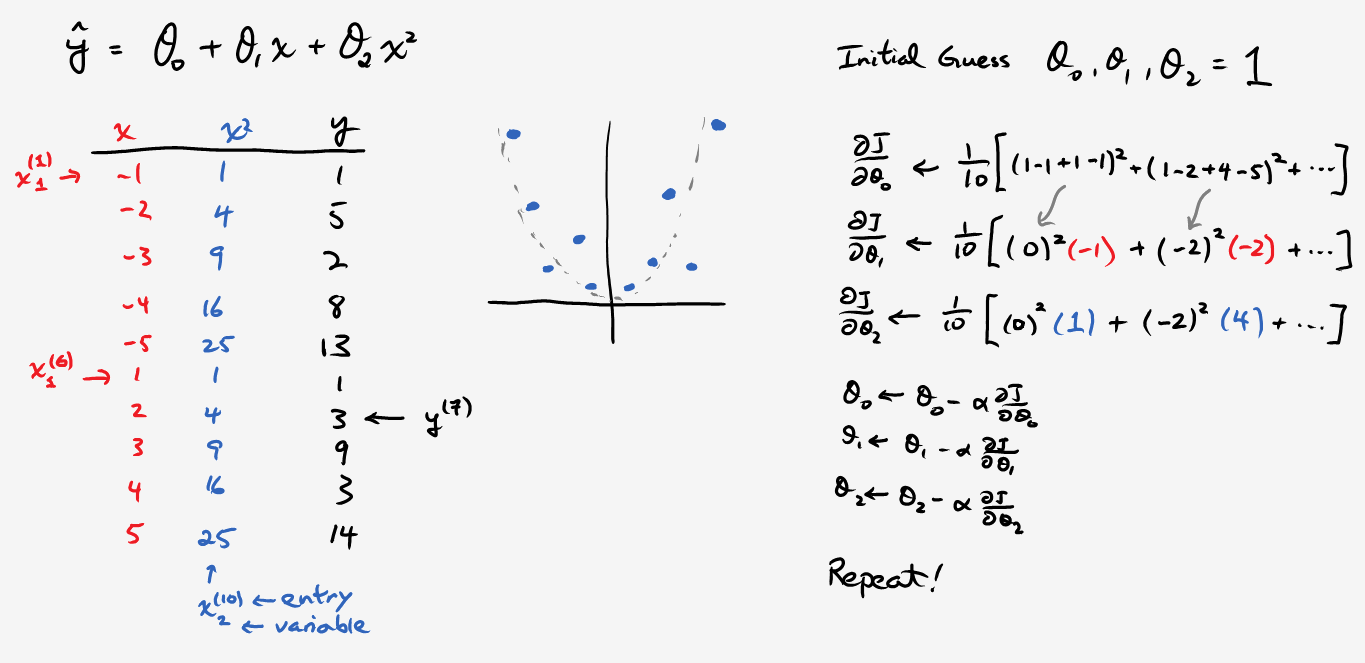 ŷ = θ₀ + θ₁x + θ₂x²
x x² y
x₁⁽¹⁾ → -1 1 1
-2 4 5
-3 9 2
-4 16 8
-5 25 13
x₁⁽⁶⁾ → 1 1 1
2 4 3 ← y⁽⁷⁾
3 9 9
4 16 3
5 25 14
↑
x₂⁽¹⁰⁾ ← entry
← variable
Initial Guess θ₀, θ₁, θ₂ = 1
∂J/∂θ₀ ← 1/10 [(1-1+1-1)² + (1-2+4-5)² + ...]
∂J/∂θ₁ ← 1/10 [(0)²(-1) + (-2)²(-2) + ...]
∂J/∂θ₂ ← 1/10 [(0)²(1) + (-2)²(4) + ...]
θ₀ ← θ₀ - α ∂J/∂θ₀
θ₁ ← θ₁ - α ∂J/∂θ₁
θ₂ ← θ₂ - α ∂J/∂θ₂
Repeat!